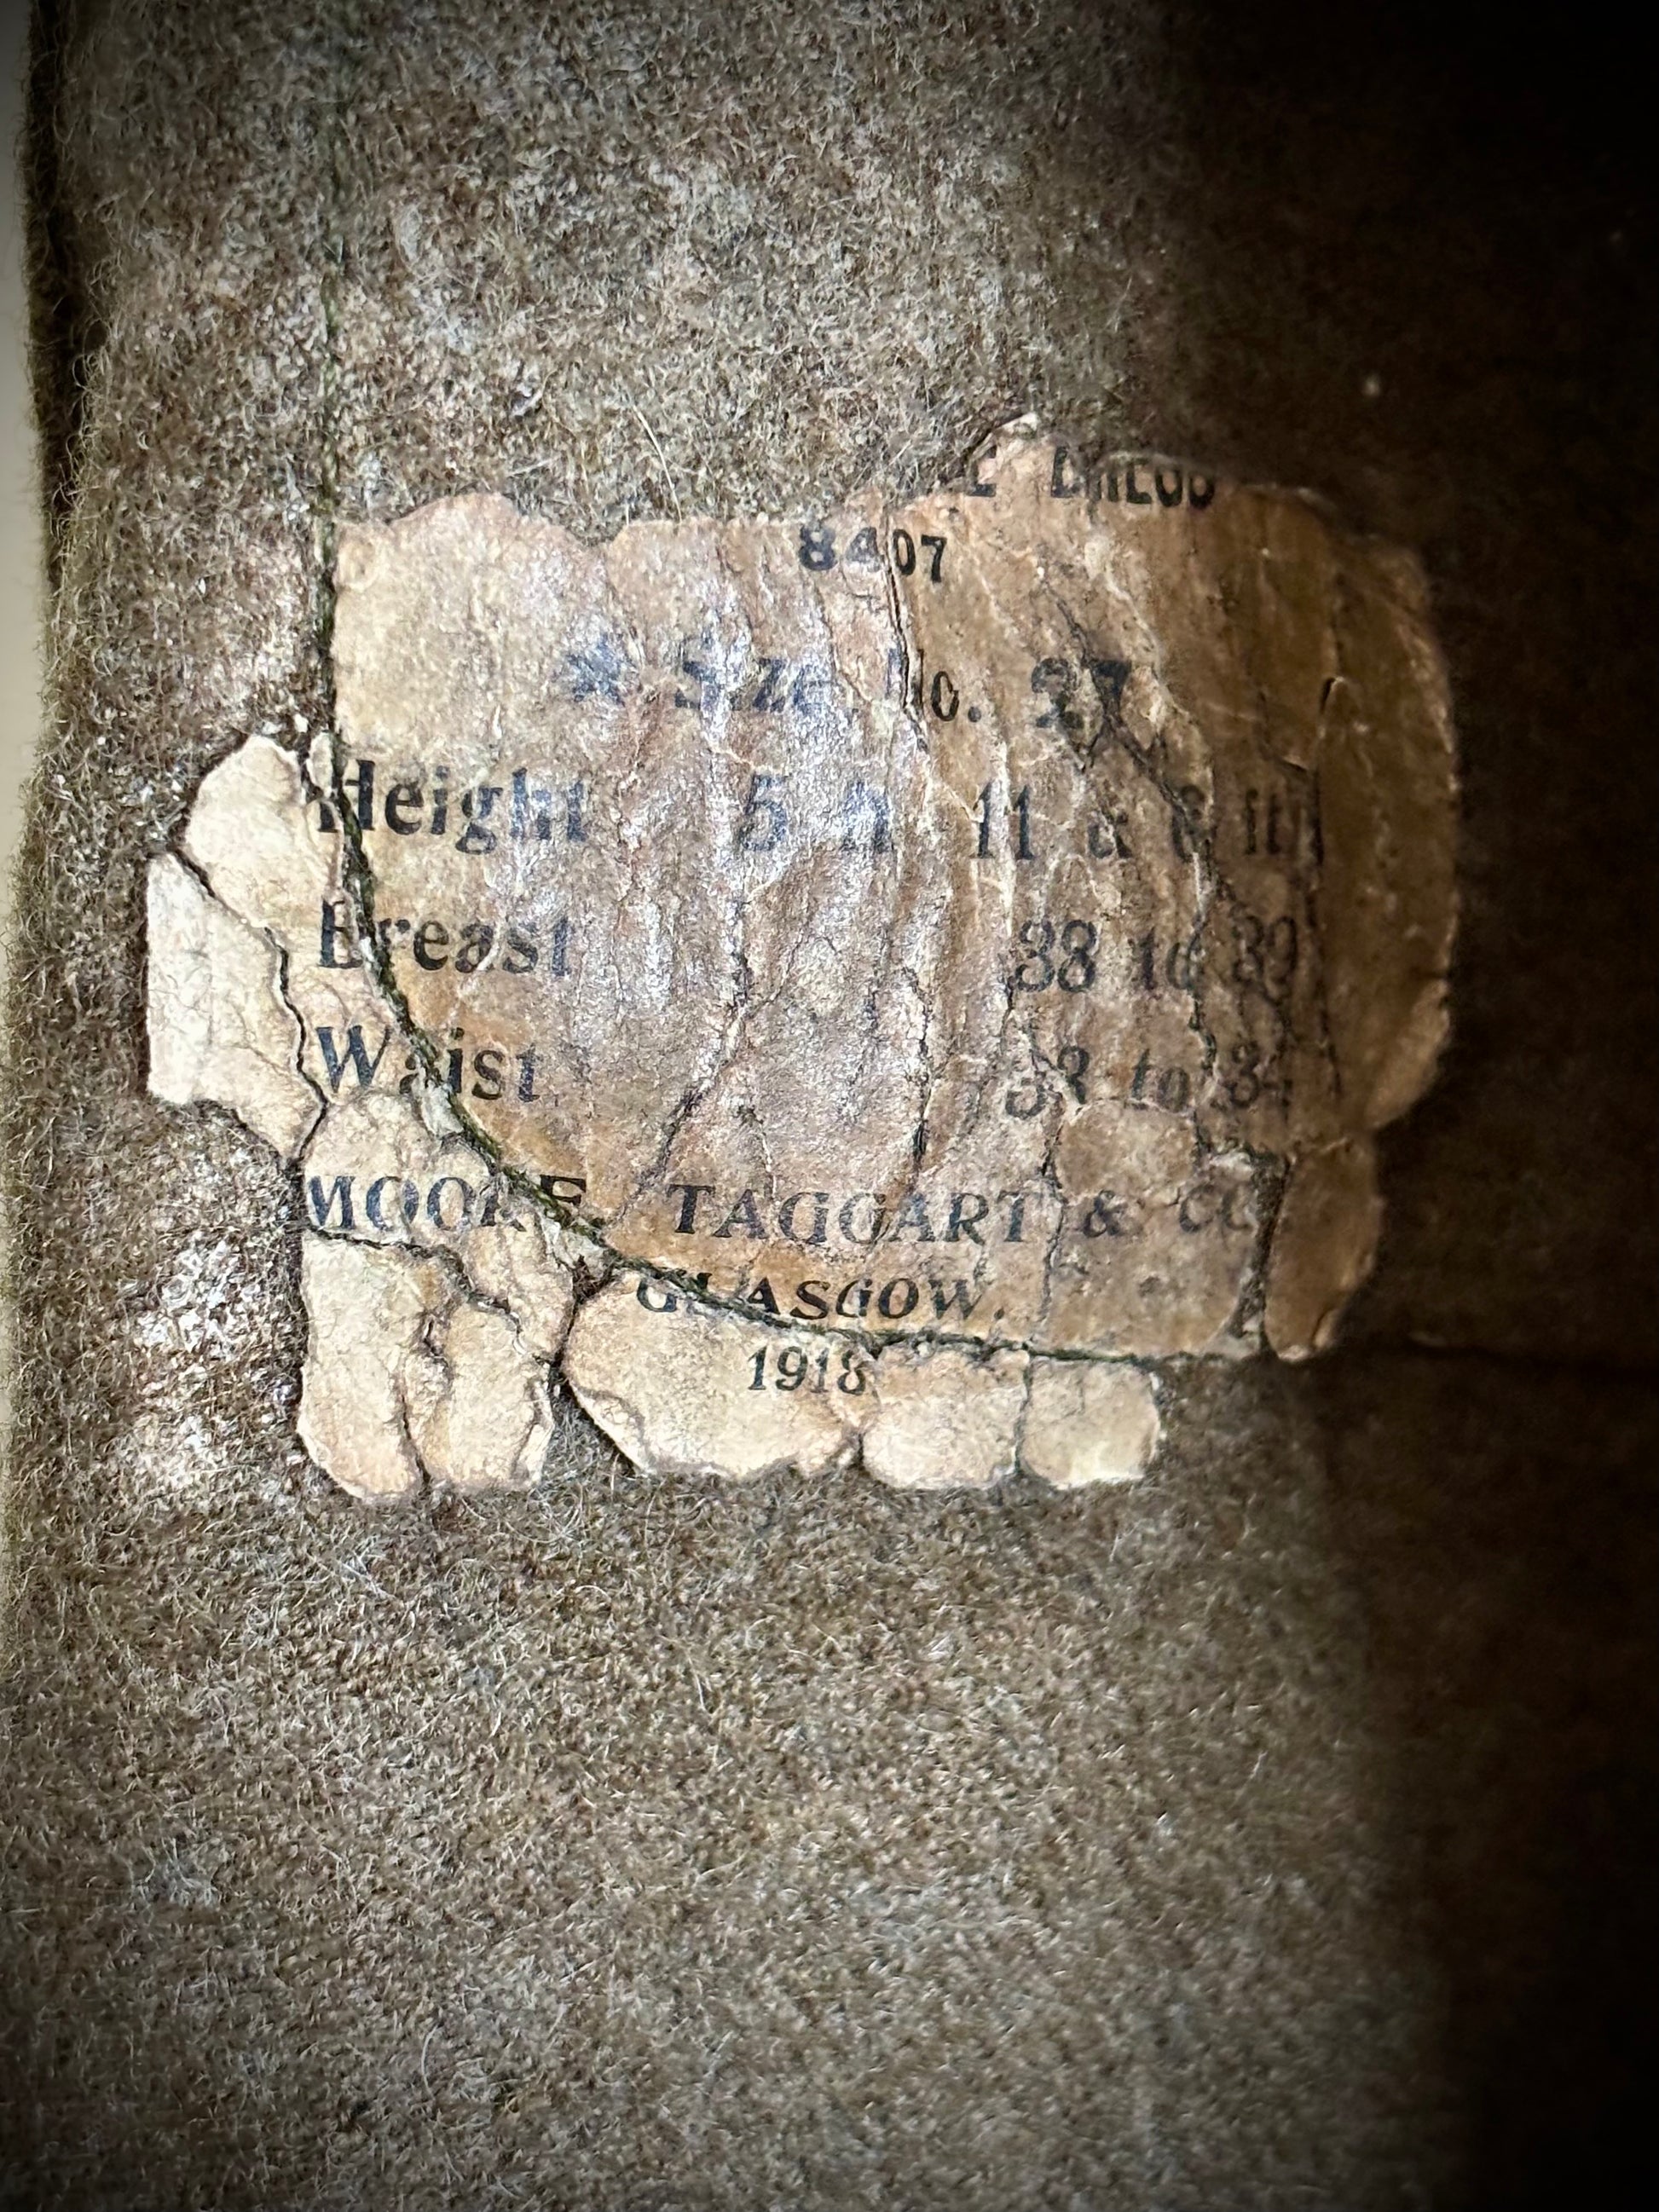 8407
Size No. 27
Height 5 ft 11 & 6 ft
Breast 38 to 39
Waist to
MOORE, TAGGART & CO
GLASGOW.
1918